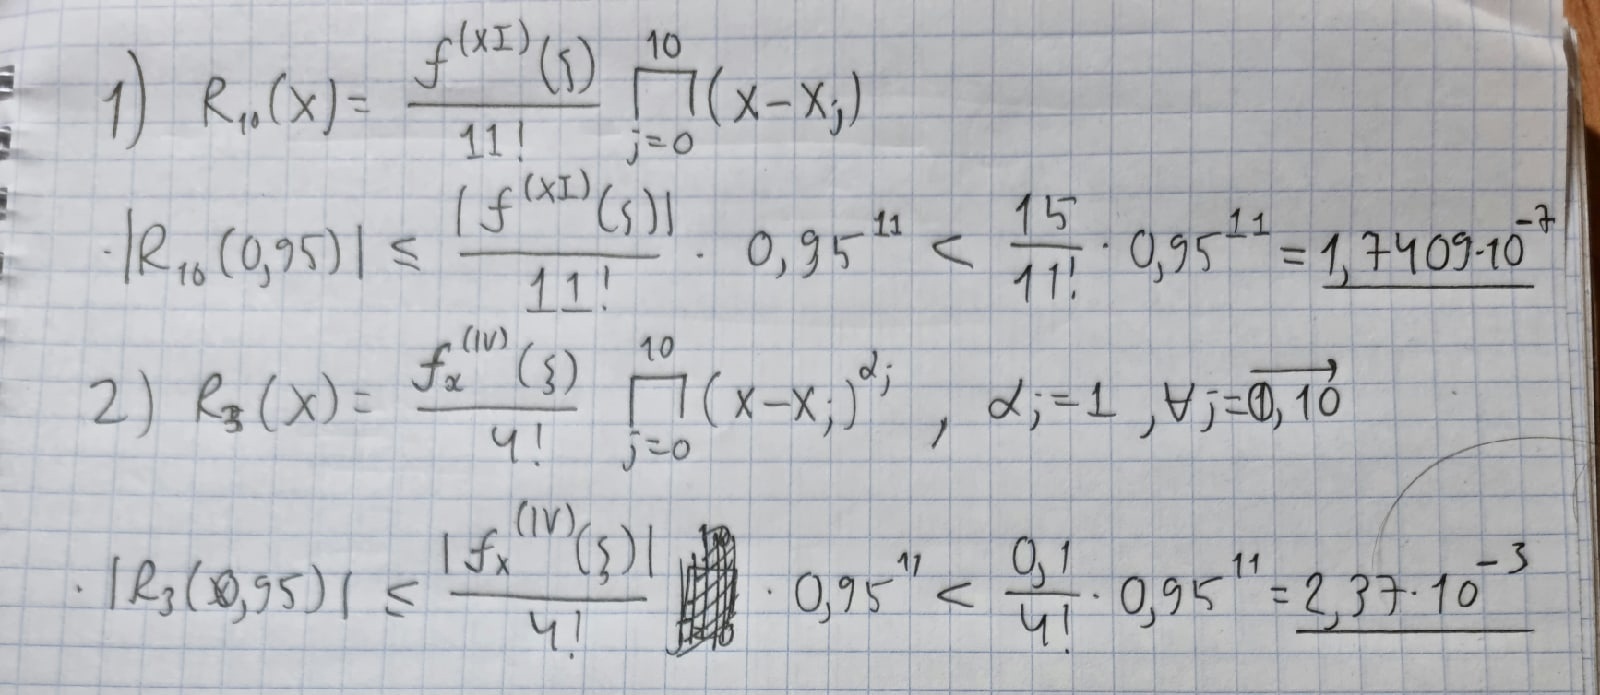 1) R₁₀(x) = f^(XI)(ξ) / 11! ∏_{j=0}^{10} (x-x_j)
|R₁₀(0,95)| ≤ |f^(XI)(ξ)| / 11! · 0,95^11 < 15/11! · 0,95^11 = 1,7409·10^-7
2) R₃(x) = f_x^(IV)(ξ) / 4! ∏_{j=0}^{10} (x-x_j)^{α_j}, α_j=1, ∀j=0,10
|R₃(0,95)| ≤ |f_x^(IV)(ξ)| / 4! · 0,95^11 < 0,1/4! · 0,95^11 = 2,37·10^-3